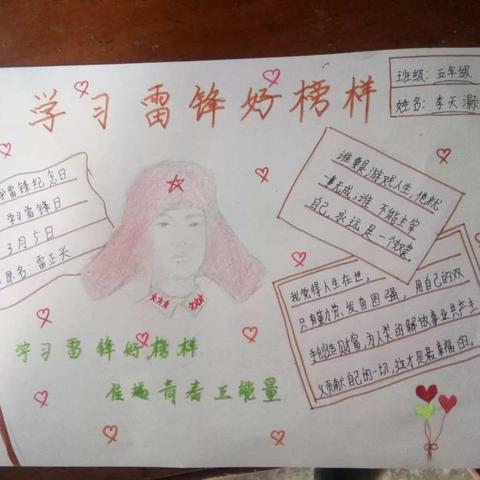 学习雷锋好榜样
班级:五年级
姓名:李天灏
雷锋纪念日
学习雷锋日
3月5日
原名:雷正兴
谁要是游戏人生,他就
一事无成;谁 不能主宰
自己,永远是一个奴隶。
我觉得人生在世,
只有勤劳、发奋图强, 用自己的双
手创造财富,为人类的解放事业共产主
义贡献自己的一切,这才是最幸福的。
学习雷锋好榜样
传递青春正能量